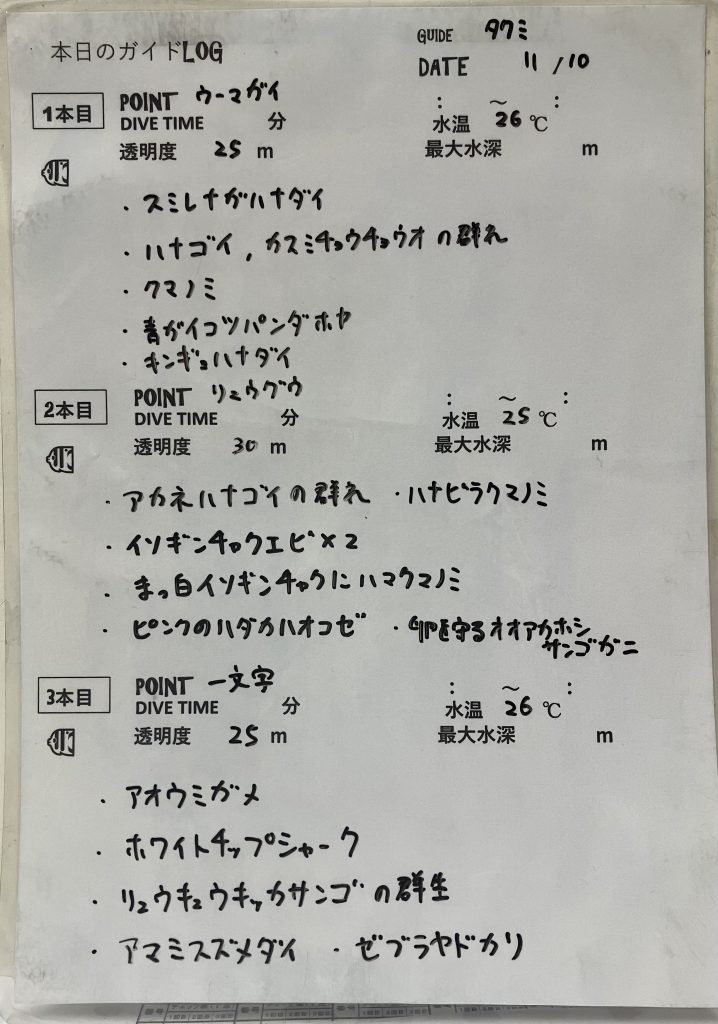 本日のガイドLOG
GUIDE タクミ
DATE 11/10
1本目 POINT ウーマガイ : ～ :
DIVE TIME 分 水温 26 ℃
透明度 25 m 最大水深 m
・スミレナガハナダイ
・ハナゴイ,カスミチョウチョウオの群れ
・クマノミ
・青ガイコツパンダホヤ
・キンギョハナダイ
2本目 POINT リュウグウ : ～ :
DIVE TIME 分 水温 25 ℃
透明度 30 m 最大水深 m
・アカネハナゴイの群れ ・ハナビラクマノミ
・イソギンチャクエビ×2
・まっ白イソギンチャクにハマクマノミ
・ピンクのハダカハオコゼ ・卵を守るオオアカホシ
サンゴガニ
3本目 POINT 一文字 : ～ :
DIVE TIME 分 水温 26 ℃
透明度 25 m 最大水深 m
・アオウミガメ
・ホワイトチップシャーク
・リュウキュウキッカサンゴの群生
・アマミスズメダイ ・ゼブラヤドカリ